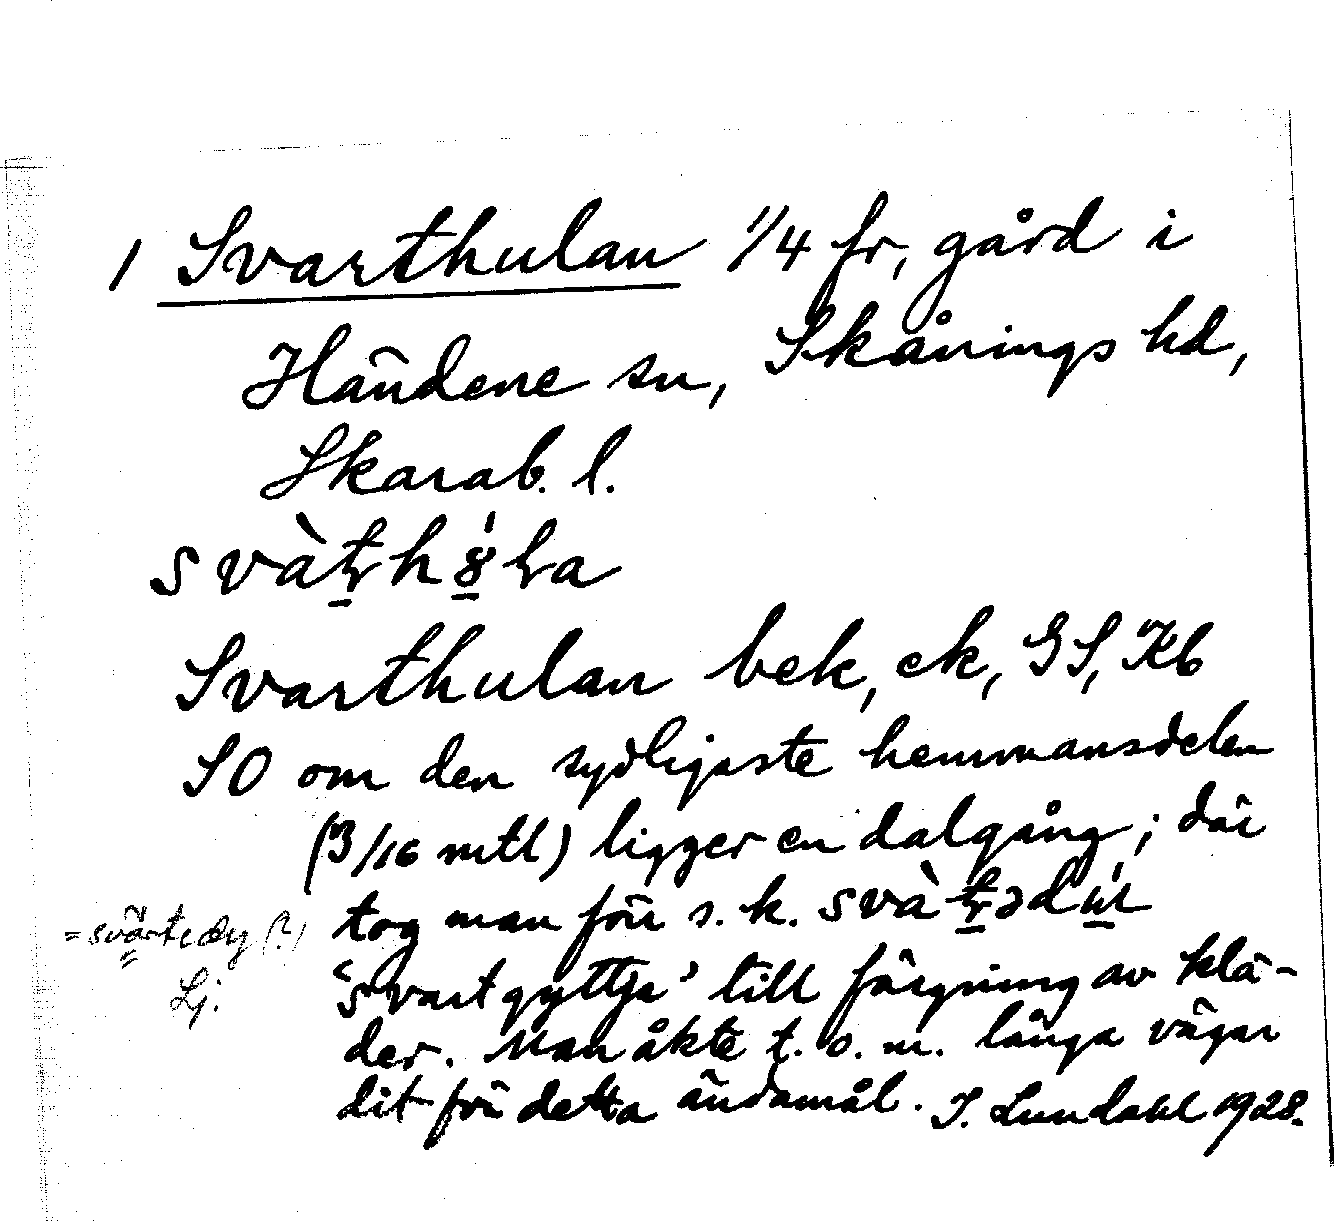 1 Svarthulan 1/4 fr, gård i
Händene sn, Skånings hd,
Skarab. l.
Svarthulan bek, ek, GS, Kb
SO om den sydligaste hemmansdelen
(3/16 mtl) ligger en dalgång; där
tog man förr s. k.
'svart gyttja' till färgning av klä-
der. Man åkte t. o. m. långa vägar
dit för detta ändamål. I. Lundahl 1928.
= svärtedy (?)
Lj.